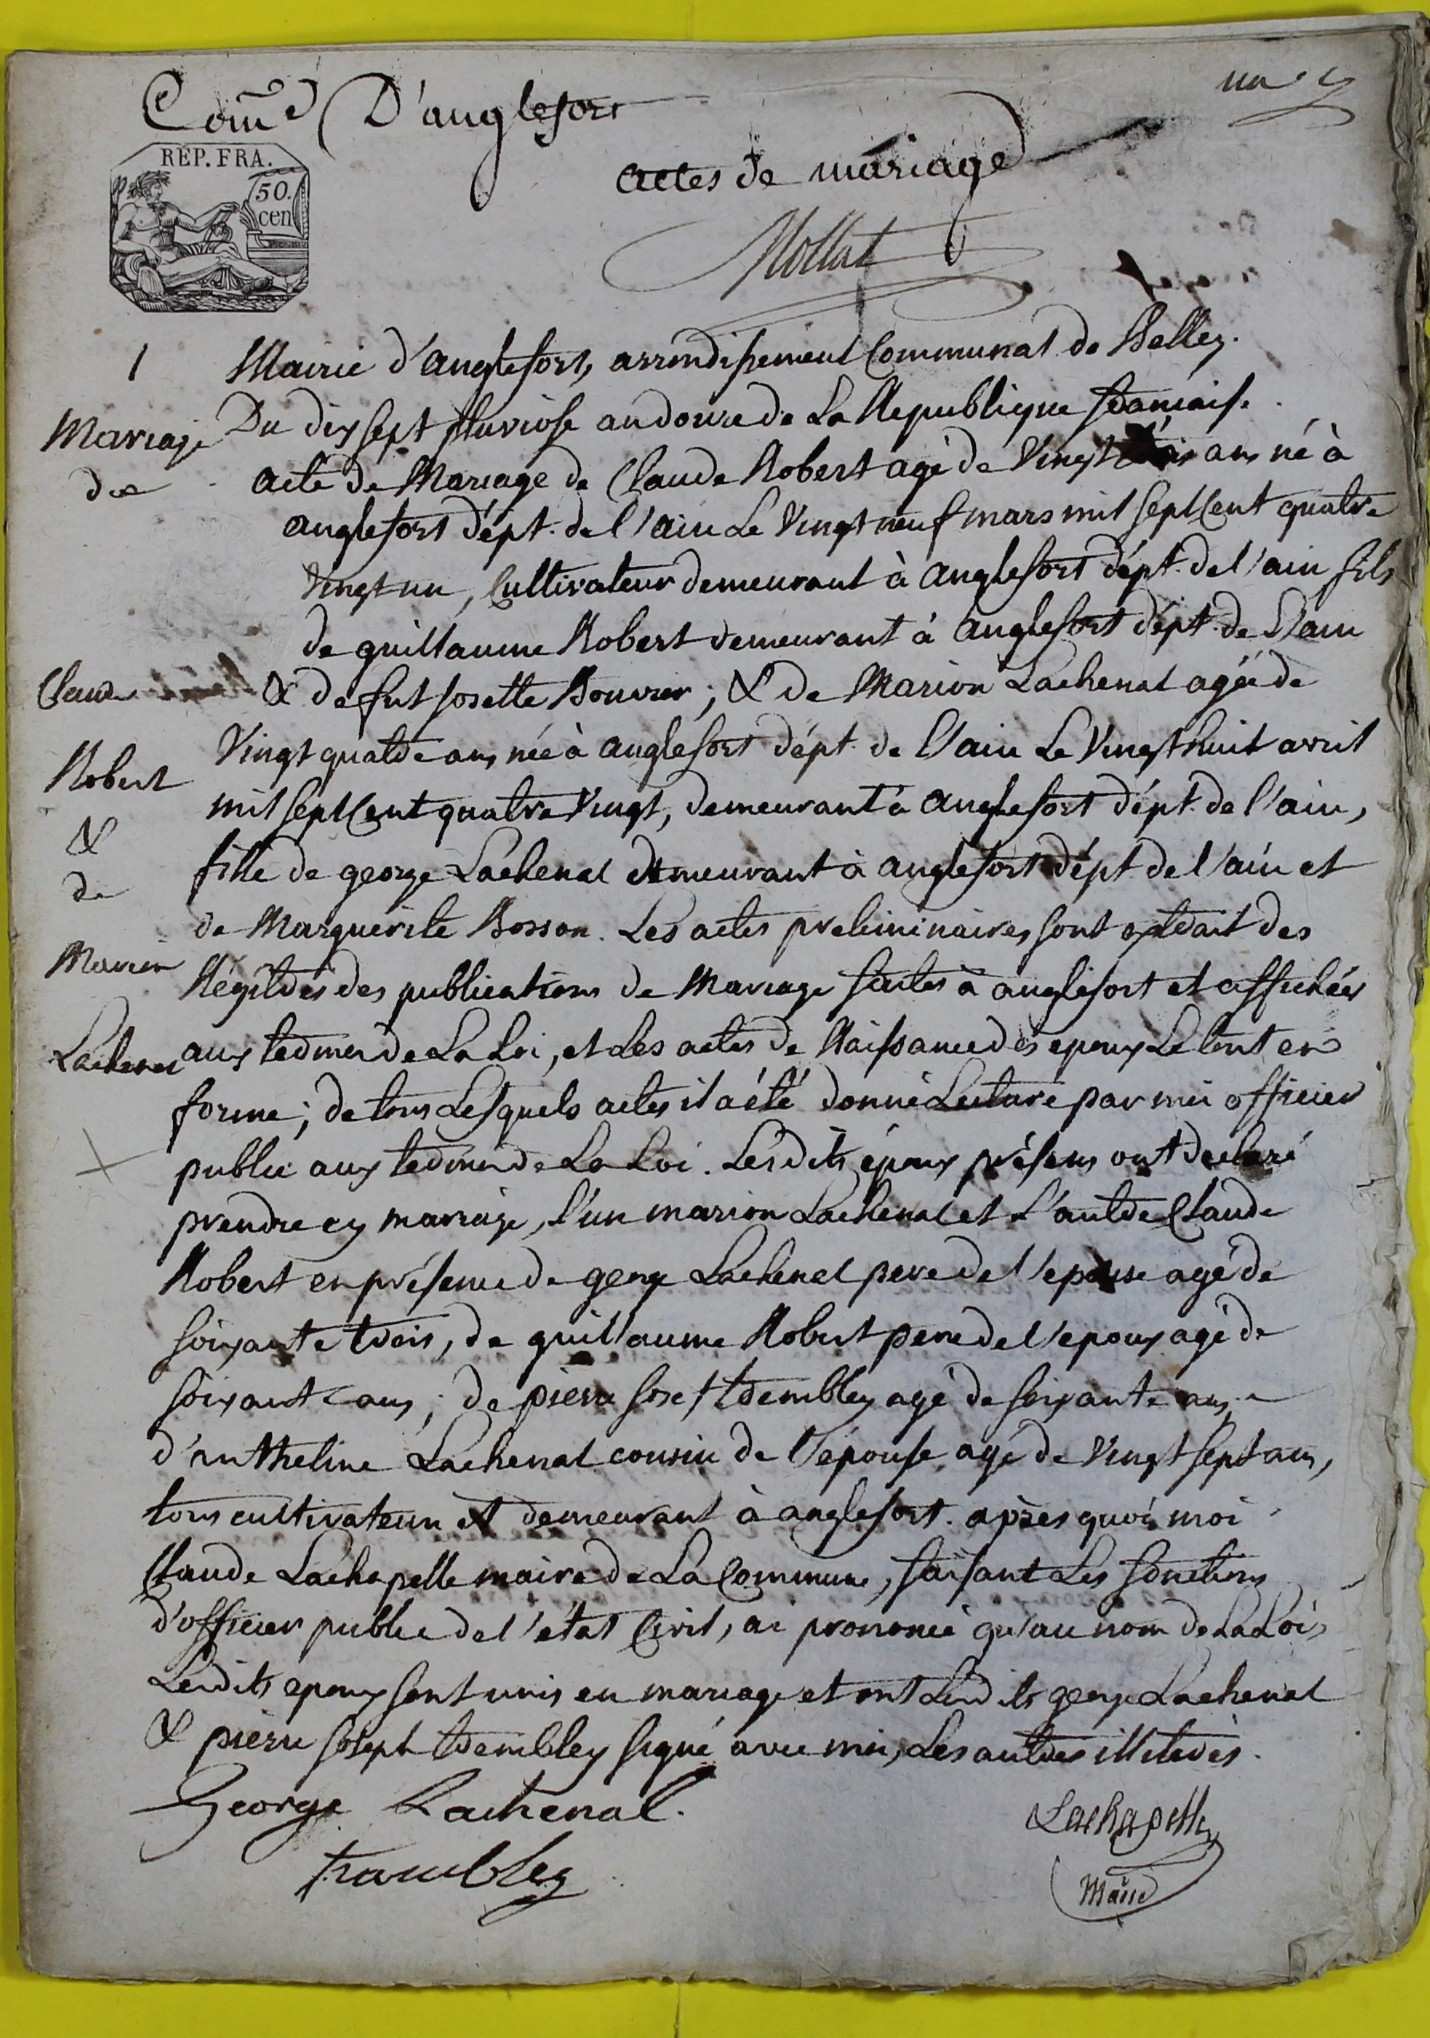 Com̃e D'anglefort
un
actes de mariage
REP. FRA.
50.
cen
Mollat
1
Mairie d'anglefort, arrondissement Communal de Belley.
Mariage
de
Claude
Robert
&
de
Marion
Lachenal
Du dix sept pluviose an douze de La Republique francaise.
acte de Mariage de Claude Robert agé de Vingt trois ans né à
anglefort dépt. de l'ain Le Vingt neuf mars mil sept Cent quatre
Vingt un, Cultivateur demeurant à anglefort dépt. de l'ain fils
de guillaume Robert demeurant à anglefort dépt. de L'ain
& de fut Josette Bouvier; & de Marion Lachenal agée de
Vingt quatre ans née à anglefort dépt. de L'ain Le Vingt huit avril
mil sept Cent quatre Vingt, demeurant à anglefort dépt. de l'ain,
fille de george Lachenal demeurant à anglefort dépt de l'ain et
de Marguerite Bosson. Les actes preliminaires sont extrait des
Régitres des publications de Mariage faites à anglefort et affichées
aux termes de La Loi, et Les actes de Naissance des epoux Le tout en
forme; de tous Lesquels actes il a été donné Lecture par moi officier
public aux termes de La Loi. Lésdits époux présens ont declaré
prendre en mariage, l'un marion Lachenal et L'autre Claude
Robert en présence de george Lachenal pere de l'epouse agé de
soixante trois, de guillaume Robert pere de l'epoux agé de
soixante ans; de pierre Josept trembley agé de soixante ans,
d'antheline Lachenal cousin de l'épouse agé de Vingt sept ans,
tous cultivateurs et demeurant à anglefort. après quoi, moi
Claude Lachapelle maire de La Commune, faisant Les fonctions
d'officier public de l'état Civil, ai prononcé qu'au nom de La Loi,
Lesdits epoux sont unis en mariage et ont Lesdits george Lachenal
& pierre Joseph trembley signé avec moi, Les autres illiterés.
George Lachenal.
Lachapelle
trambley
Maire